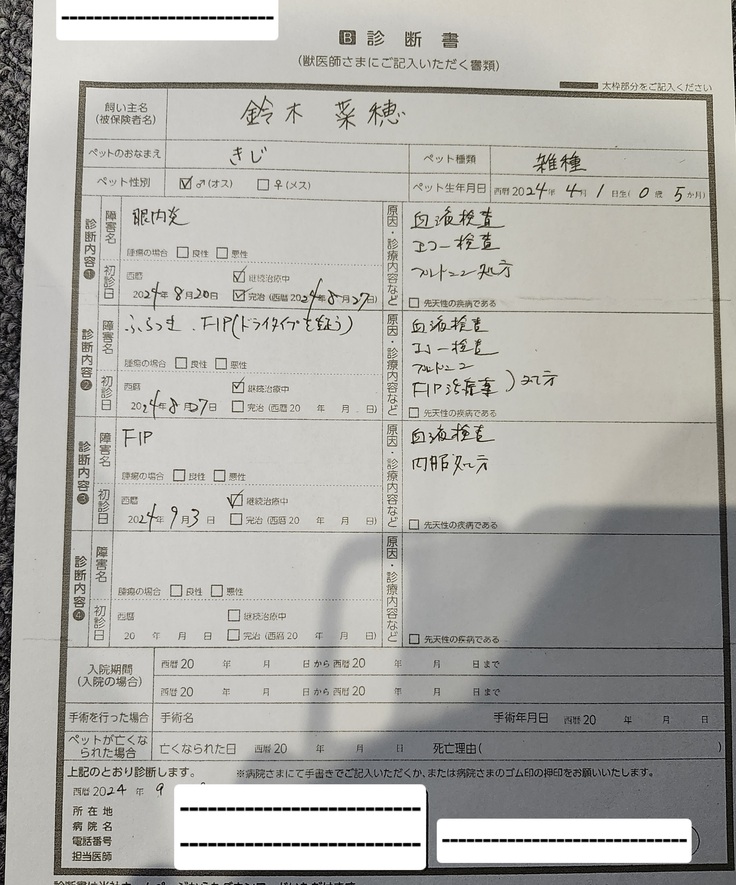 B 診断書
(獣医師さまにご記入いただく書類)
太枠部分をご記入ください
飼い主名
(被保険者名) 鈴木 菜穂
ペットのおなまえ きじ ペット種類 雑種
ペット性別 ☑♂(オス) □♀(メス) ペット生年月日 西暦2024年4月1日生(0歳5か月)
診断内容❶
障害名 眼内炎
腫瘍の場合 □良性 □悪性
初診日 西暦 2024年8月20日
☑継続治療中
☑完治 (西暦2024年8月27日)
原因・診療内容など
血液検査
エコー検査
プレドニン処方
□先天性の疾病である
診断内容❷
障害名 ふらつき、FIP(ドライタイプを疑う)
腫瘍の場合 □良性 □悪性
初診日 西暦 2024年8月27日
☑継続治療中
□完治 (西暦20 年 月 日)
原因・診療内容など
血液検査
エコー検査
プレドニン
FIP治療薬)処方
□先天性の疾病である
診断内容❸
障害名 FIP
腫瘍の場合 □良性 □悪性
初診日 西暦 2024年9月3日
☑継続治療中
□完治 (西暦20 年 月 日)
原因・診療内容など
血液検査
内服処方
□先天性の疾病である
診断内容❹
障害名
腫瘍の場合 □良性 □悪性
初診日 西暦 20 年 月 日
□継続治療中
□完治 (西暦20 年 月 日)
原因・診療内容など
□先天性の疾病である
入院期間
(入院の場合)
西暦20 年 月 日から西暦20 年 月 日まで
西暦20 年 月 日から西暦20 年 月 日まで
手術を行った場合 手術名 手術年月日 西暦20 年 月 日
ペットが亡くなられた場合 亡くなられた日 西暦20 年 月 日 死亡理由( )
上記のとおり診断します。 ※病院さまにて手書きでご記入いただくか、または病院さまのゴム印の押印をお願いいたします。
西暦2024年9
所在地
病院名
電話番号
担当医師